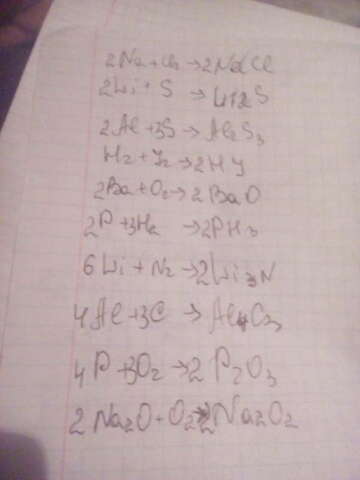 2Na+Cl₂→2NaCl
2Li+S→Li2S
2Al+3S→Al₂S₃
H₂+J₂→2HJ
2Ba+O₂→2BaO
2P+3H₂→2PH₃
6Li+N₂→2Li₃N
4Al+3C→Al₄C₃
4P+3O₂→2P₂O₃
2Na₂O+O₂→2Na₂O₂